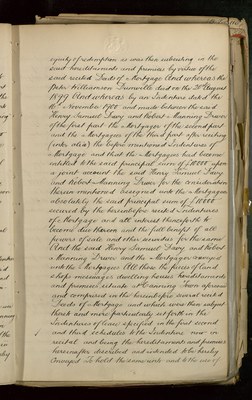 equity of redemption as was then subsisting in the
said hereditaments and premises by virtue of the
said recited Deeds of Mortgage And whereas the
said Williamson Turnerville died on the August
1899 And whereas by an Indenture dated the
10 November 1900 and made between the said
Henry Samuel Davy and Robert Manning Dewes
of the first part the Mortgagees of the second part
and the Mortgagors of the third part after reciting
(inter alia) the before mentioned Indentures of
Mortgage and that the Mortgagees had become
entitled to the said principal sum of £10000 upon
a joint account the said Henry Samuel Davy
and Robert Manning Dewes for the consideration
therein mentioned assigned unto the Mortgagees
absolutely the said principal sum of £10000
secured by the hereinbefore recited Indentures
of Mortgage and all interest thenceforth to
become due thereon and the full benefit of all
powers of sale and other securities for the same
And the said Henry Samuel Davy and Robert
Manning Dewes and the Mortgagors conveyed
unto the Mortgagees All those the pieces of land
shops messuages dwelling houses hereditaments
and premises situate at Manning Town aforesaid
and comprised in the hereinbefore several recited
Deeds of Mortgage and which were then subject
thereto and more particularly set forth in the
Indentures of lease specified in the first second
and third schedules to the Indenture now in
recital and being the hereditaments and premises
hereinafter described and intended to be hereby
conveyed To hold the same unto and to the use of